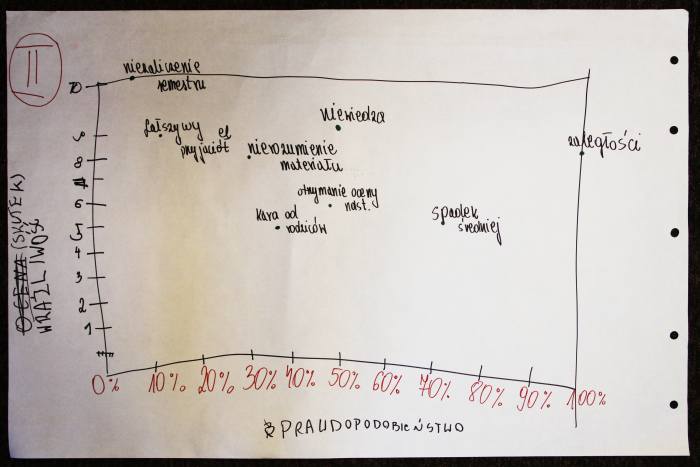 II
niezaliczenie
semestru
10
fałszywy
przyjaciół
niewiedza
9
nierozumienie
materiału
zaległości
8
7
otrzymanie oceny
nast.
6
kara od
rodziców
spadek
średniej
5
4
3
2
1
OCENA (SKUTEK)
WRAŻLIWOŚĆ
0% 10% 20% 30% 40% 50% 60% 70% 80% 90% 100%
PRAWDOPODOBIEŃSTWO